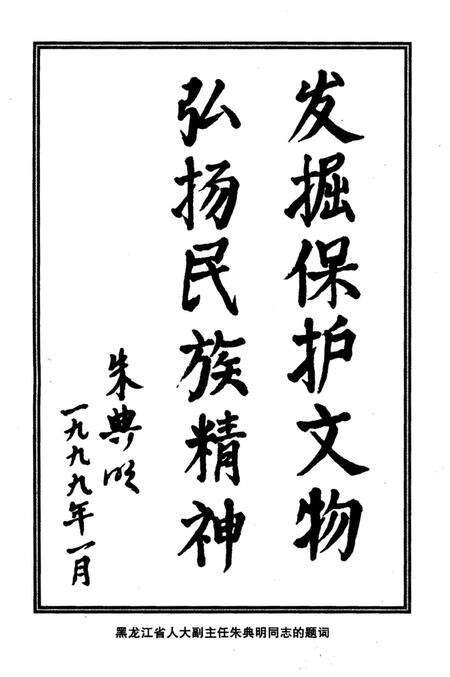 发掘保护文物
弘扬民族精神
朱典明
一九九九年一月
黑龙江省人大副主任朱典明同志的题词